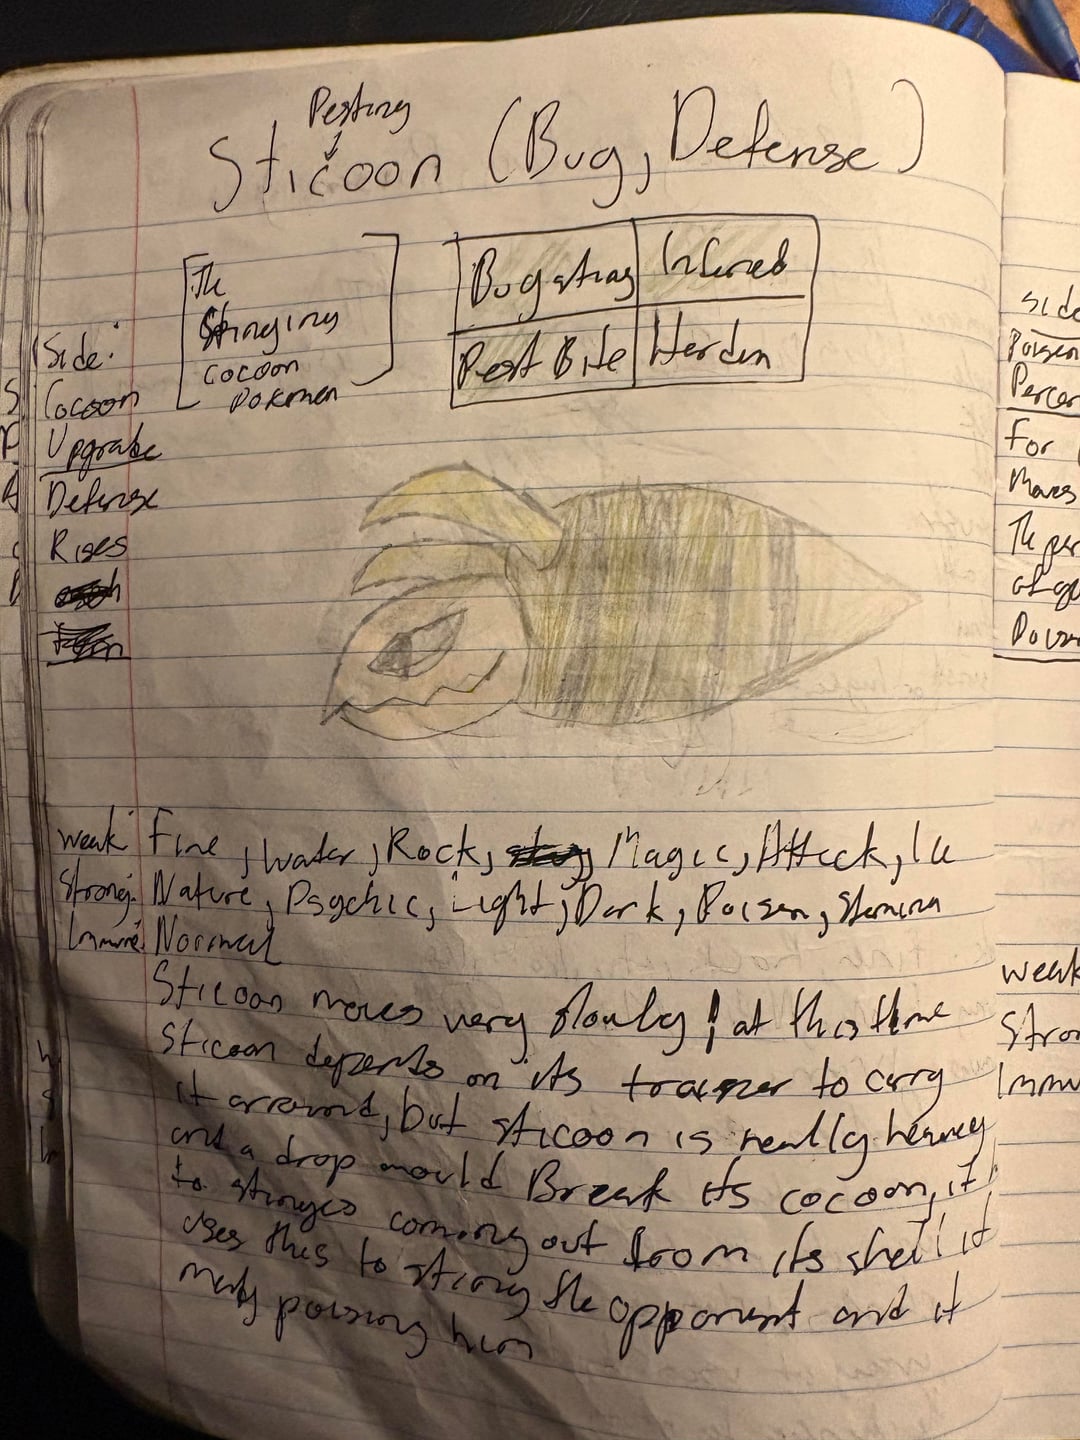 Pesting
Sticoon (Bug, Defense)
The
Stinging
cocoon
Pokmen
Bug sting
Infared
Pest Bite
Harden
Side:
Cocoon
Upgrade
Defense
Rises
weak: Fire, Water, Rock, Magic, Attack, Ice
Strong: Nature, Psychic, Light, Dark, Poisen, Stamina
Immune: Normal
Sticoon moves very slowly! at this time
Sticoon depents on its trainer to carry
it arround, but sticoon is really heavey
and a drop would Break its cocoon, it
to stinges coming out from its shell it
uses this to sting the opponent and it
poising him
side
Poisen
For
Moves
The per
of
weak
Stron
Immu